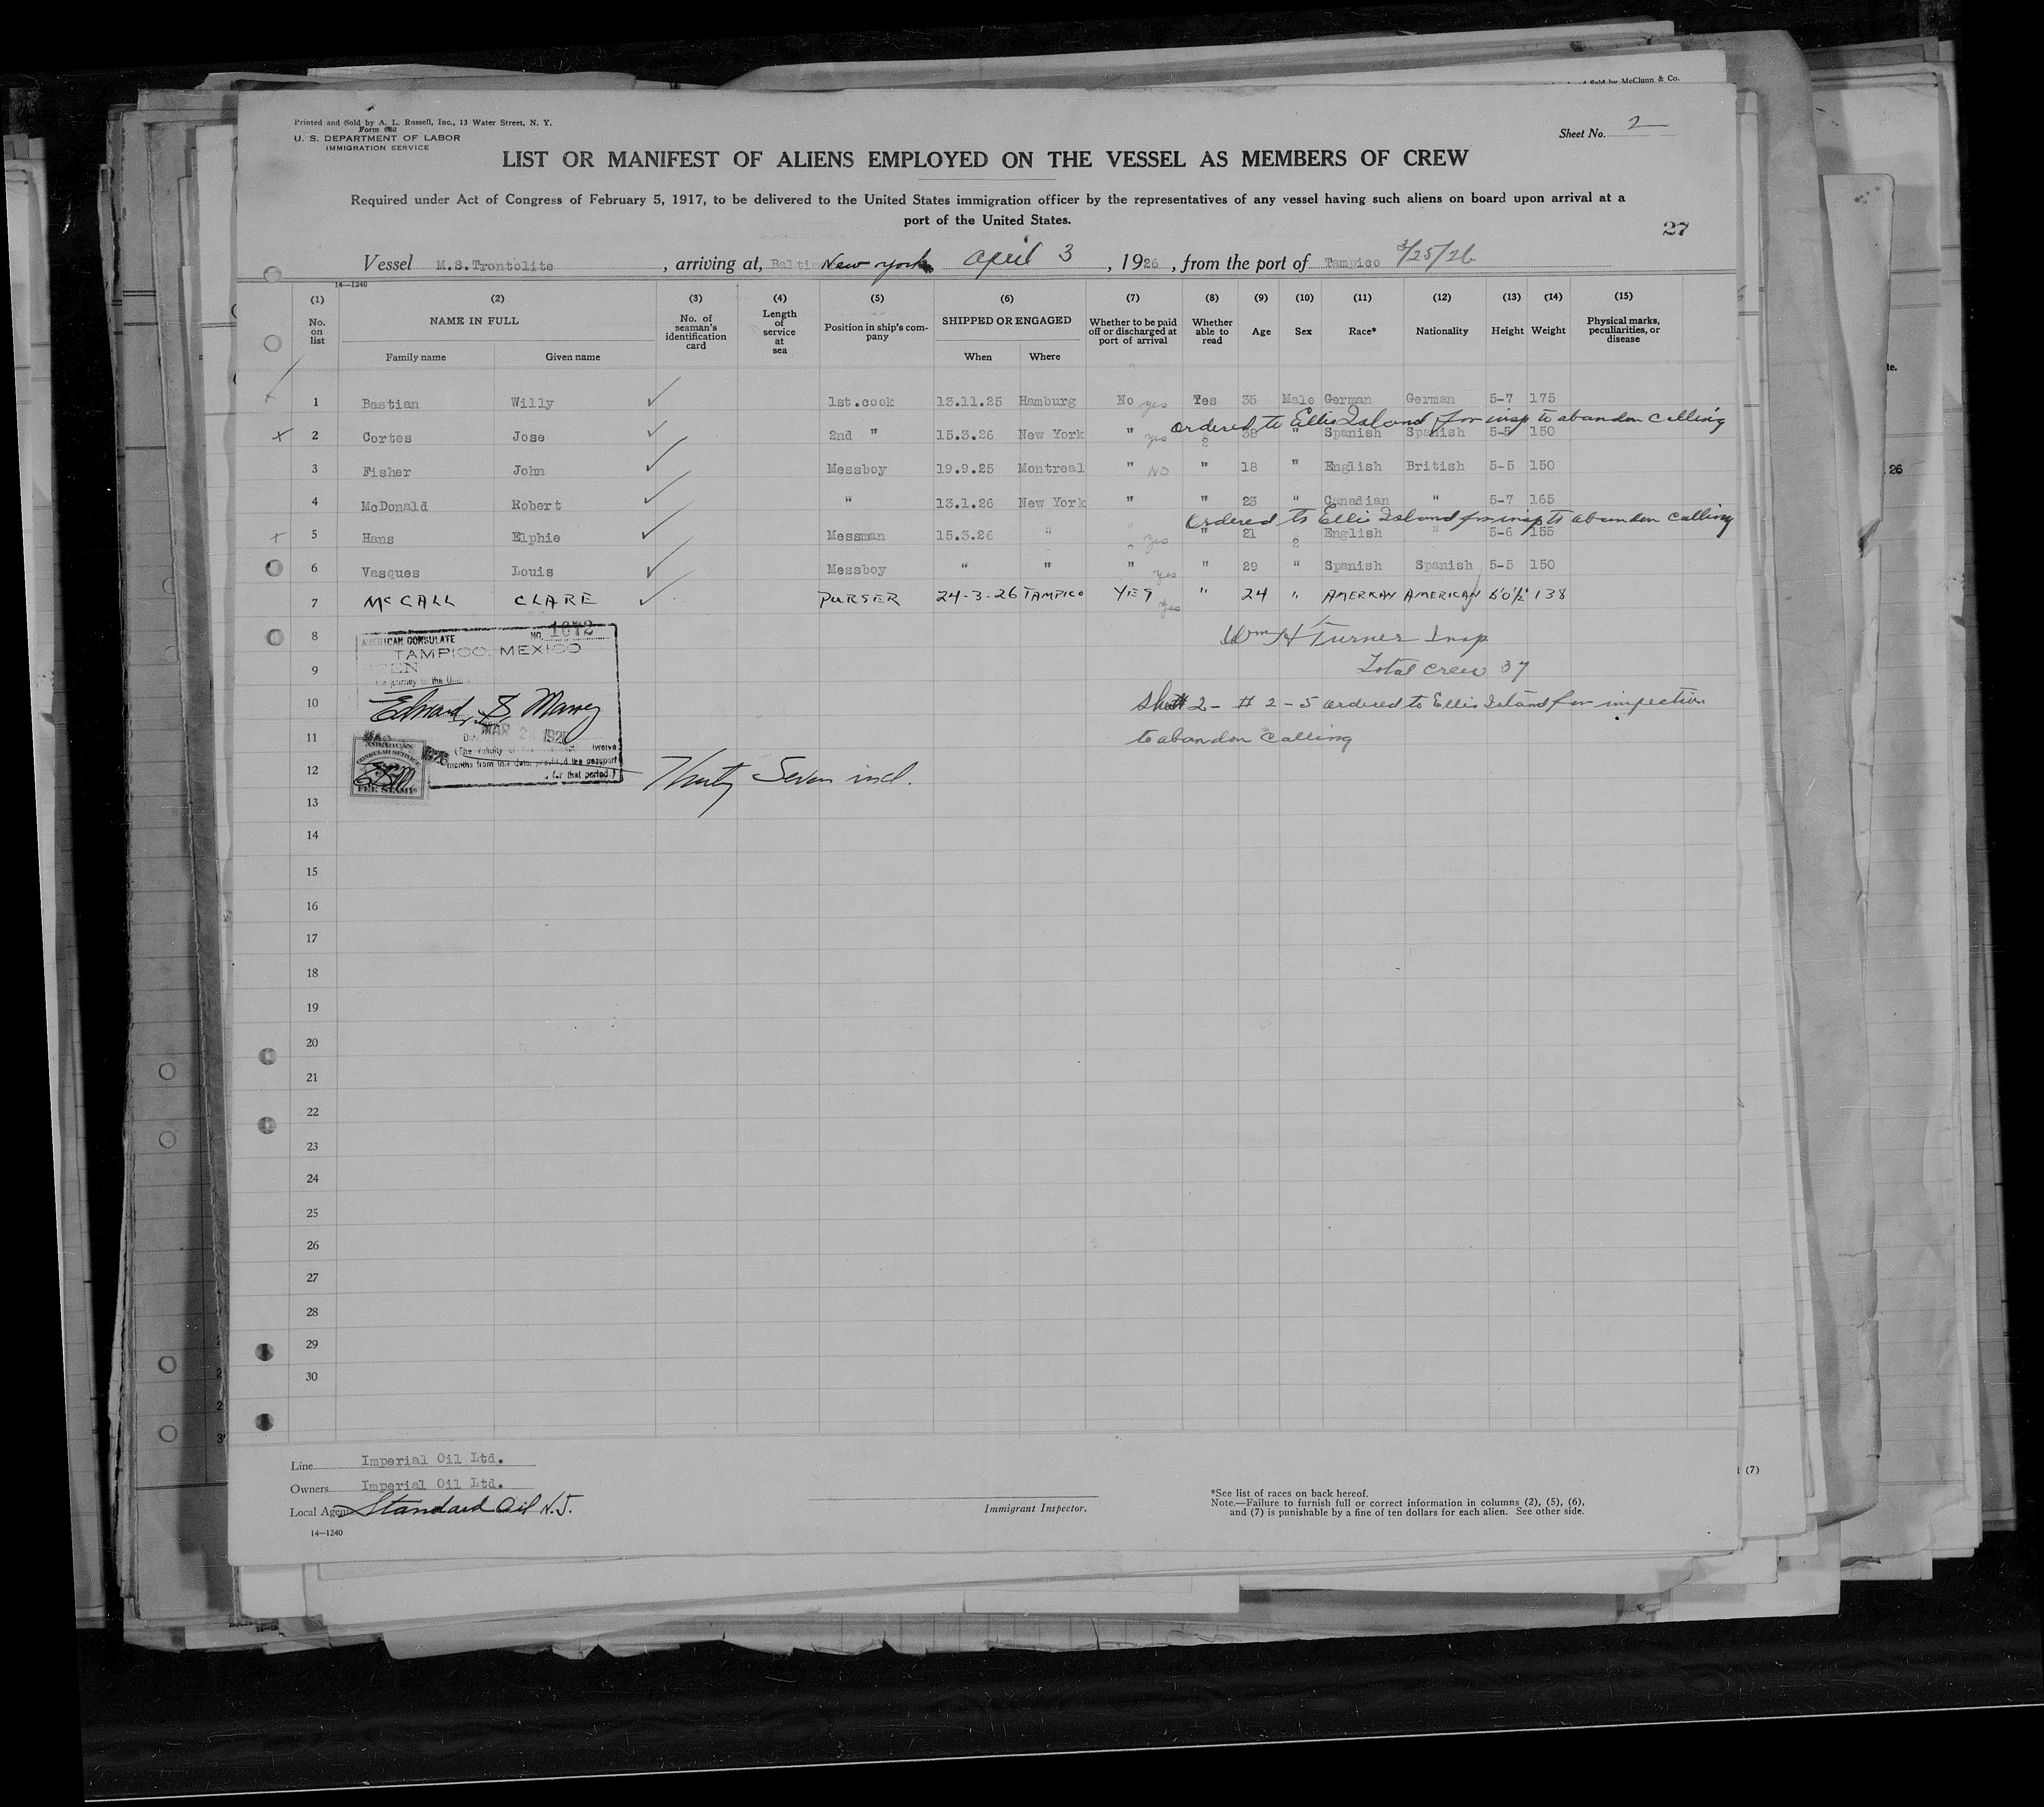 Sold by McClunn & Co.
Printed and Sold by A. L. Russell, Inc., 13 Water Street, N. Y.
Form 680
U. S. DEPARTMENT OF LABOR
IMMIGRATION SERVICE
Sheet No. 2
LIST OR MANIFEST OF ALIENS EMPLOYED ON THE VESSEL AS MEMBERS OF CREW
Required under Act of Congress of February 5, 1917, to be delivered to the United States immigration officer by the representatives of any vessel having such aliens on board upon arrival at a
port of the United States.
27
Vessel M.S.Trontolite, arriving at, New york april 3, 1926, from the port of Tampico 3/25/26
14—1240
(1) (2) (3) (4) (5) (6) (7) (8) (9) (10) (11) (12) (13) (14) (15)
No. on list NAME IN FULL Family name Given name No. of seaman's identification card Length of service at sea Position in ship's company SHIPPED OR ENGAGED When Where Whether to be paid off or discharged at port of arrival Whether able to read Age Sex Race* Nationality Height Weight Physical marks, peculiarities, or disease
1 Bastian Willy 1st.cook 13.11.25 Hamburg No yes Yes 35 Male German German 5-7 175
ordered to Ellis Island for insp to abandon calling
2 Cortes Jose 2nd " 15.3.26 New York " yes 38 " Spanish Spanish 5-5 150
3 Fisher John Messboy 19.9.25 Montreal " NO " 18 " English British 5-5 150
4 McDonald Robert " 13.1.26 New York " " 23 " Canadian " 5-7 165
Ordered to Ellis Island for insp to abandon calling
5 Hans Elphie Messman 15.3.26 " " yes " 21 English " 5-6 155
6 Vasques Louis Messboy " " " yes " 29 " Spanish Spanish 5-5 150
7 McCALL CLARE PURSER 24-3-26 TAMPICO YES yes " 24 " AMERICAN AMERICAN 5'0½" 138
8 AMERICAN CONSULATE NO. 1672
TAMPICO, MEXICO
Wm H Turner Insp
9 Total crew 37
10 Sheet 2 - # 2 - 5 ordered to Ellis Island for inspection
11 to abandon calling
MAR 1926
(The validity of twelve
months from this date provided the passport
for that period.)
AMERICAN
CONSULAR SERVICE
FEE STAMP
12 Thirty Seven incl.
13
14
15
16
17
18
19
20
21
22
23
24
25
26
27
28
29
30
Line Imperial Oil Ltd.
Owners Imperial Oil Ltd.
Local Agents Standard Oil N.J.
14—1240
Immigrant Inspector.
*See list of races on back hereof.
Note.—Failure to furnish full or correct information in columns (2), (5), (6),
and (7) is punishable by a fine of ten dollars for each alien. See other side.
(7)
26